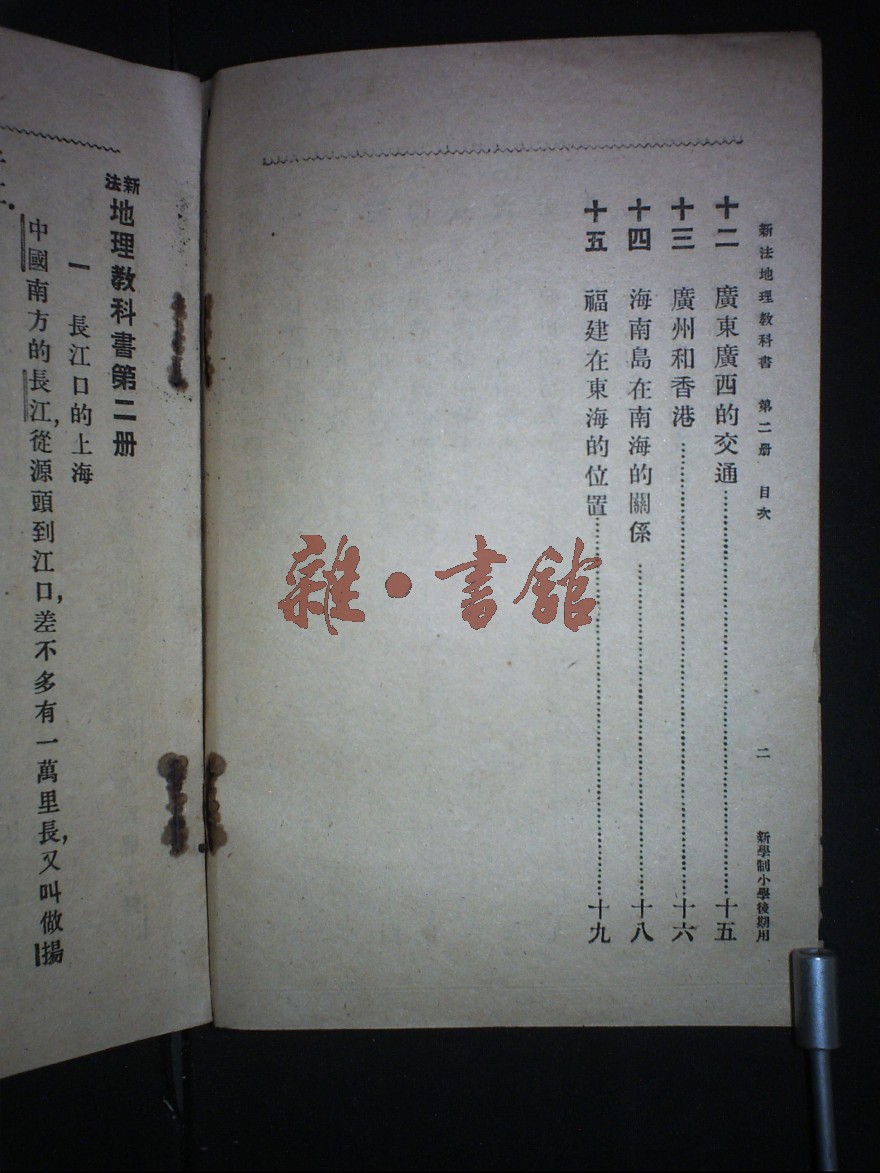 新法地理教科書 第二册 目次 二 新學制小學後期用
十二 廣東廣西的交通……十五
十三 廣州和香港……十六
十四 海南島在南海的關係……十八
十五 福建在東海的位置……十九
雜·書館
新法地理教科書第二册
一 長江口的上海
中國南方的長江,從源頭到江口,差不多有一萬里長,又叫做揚